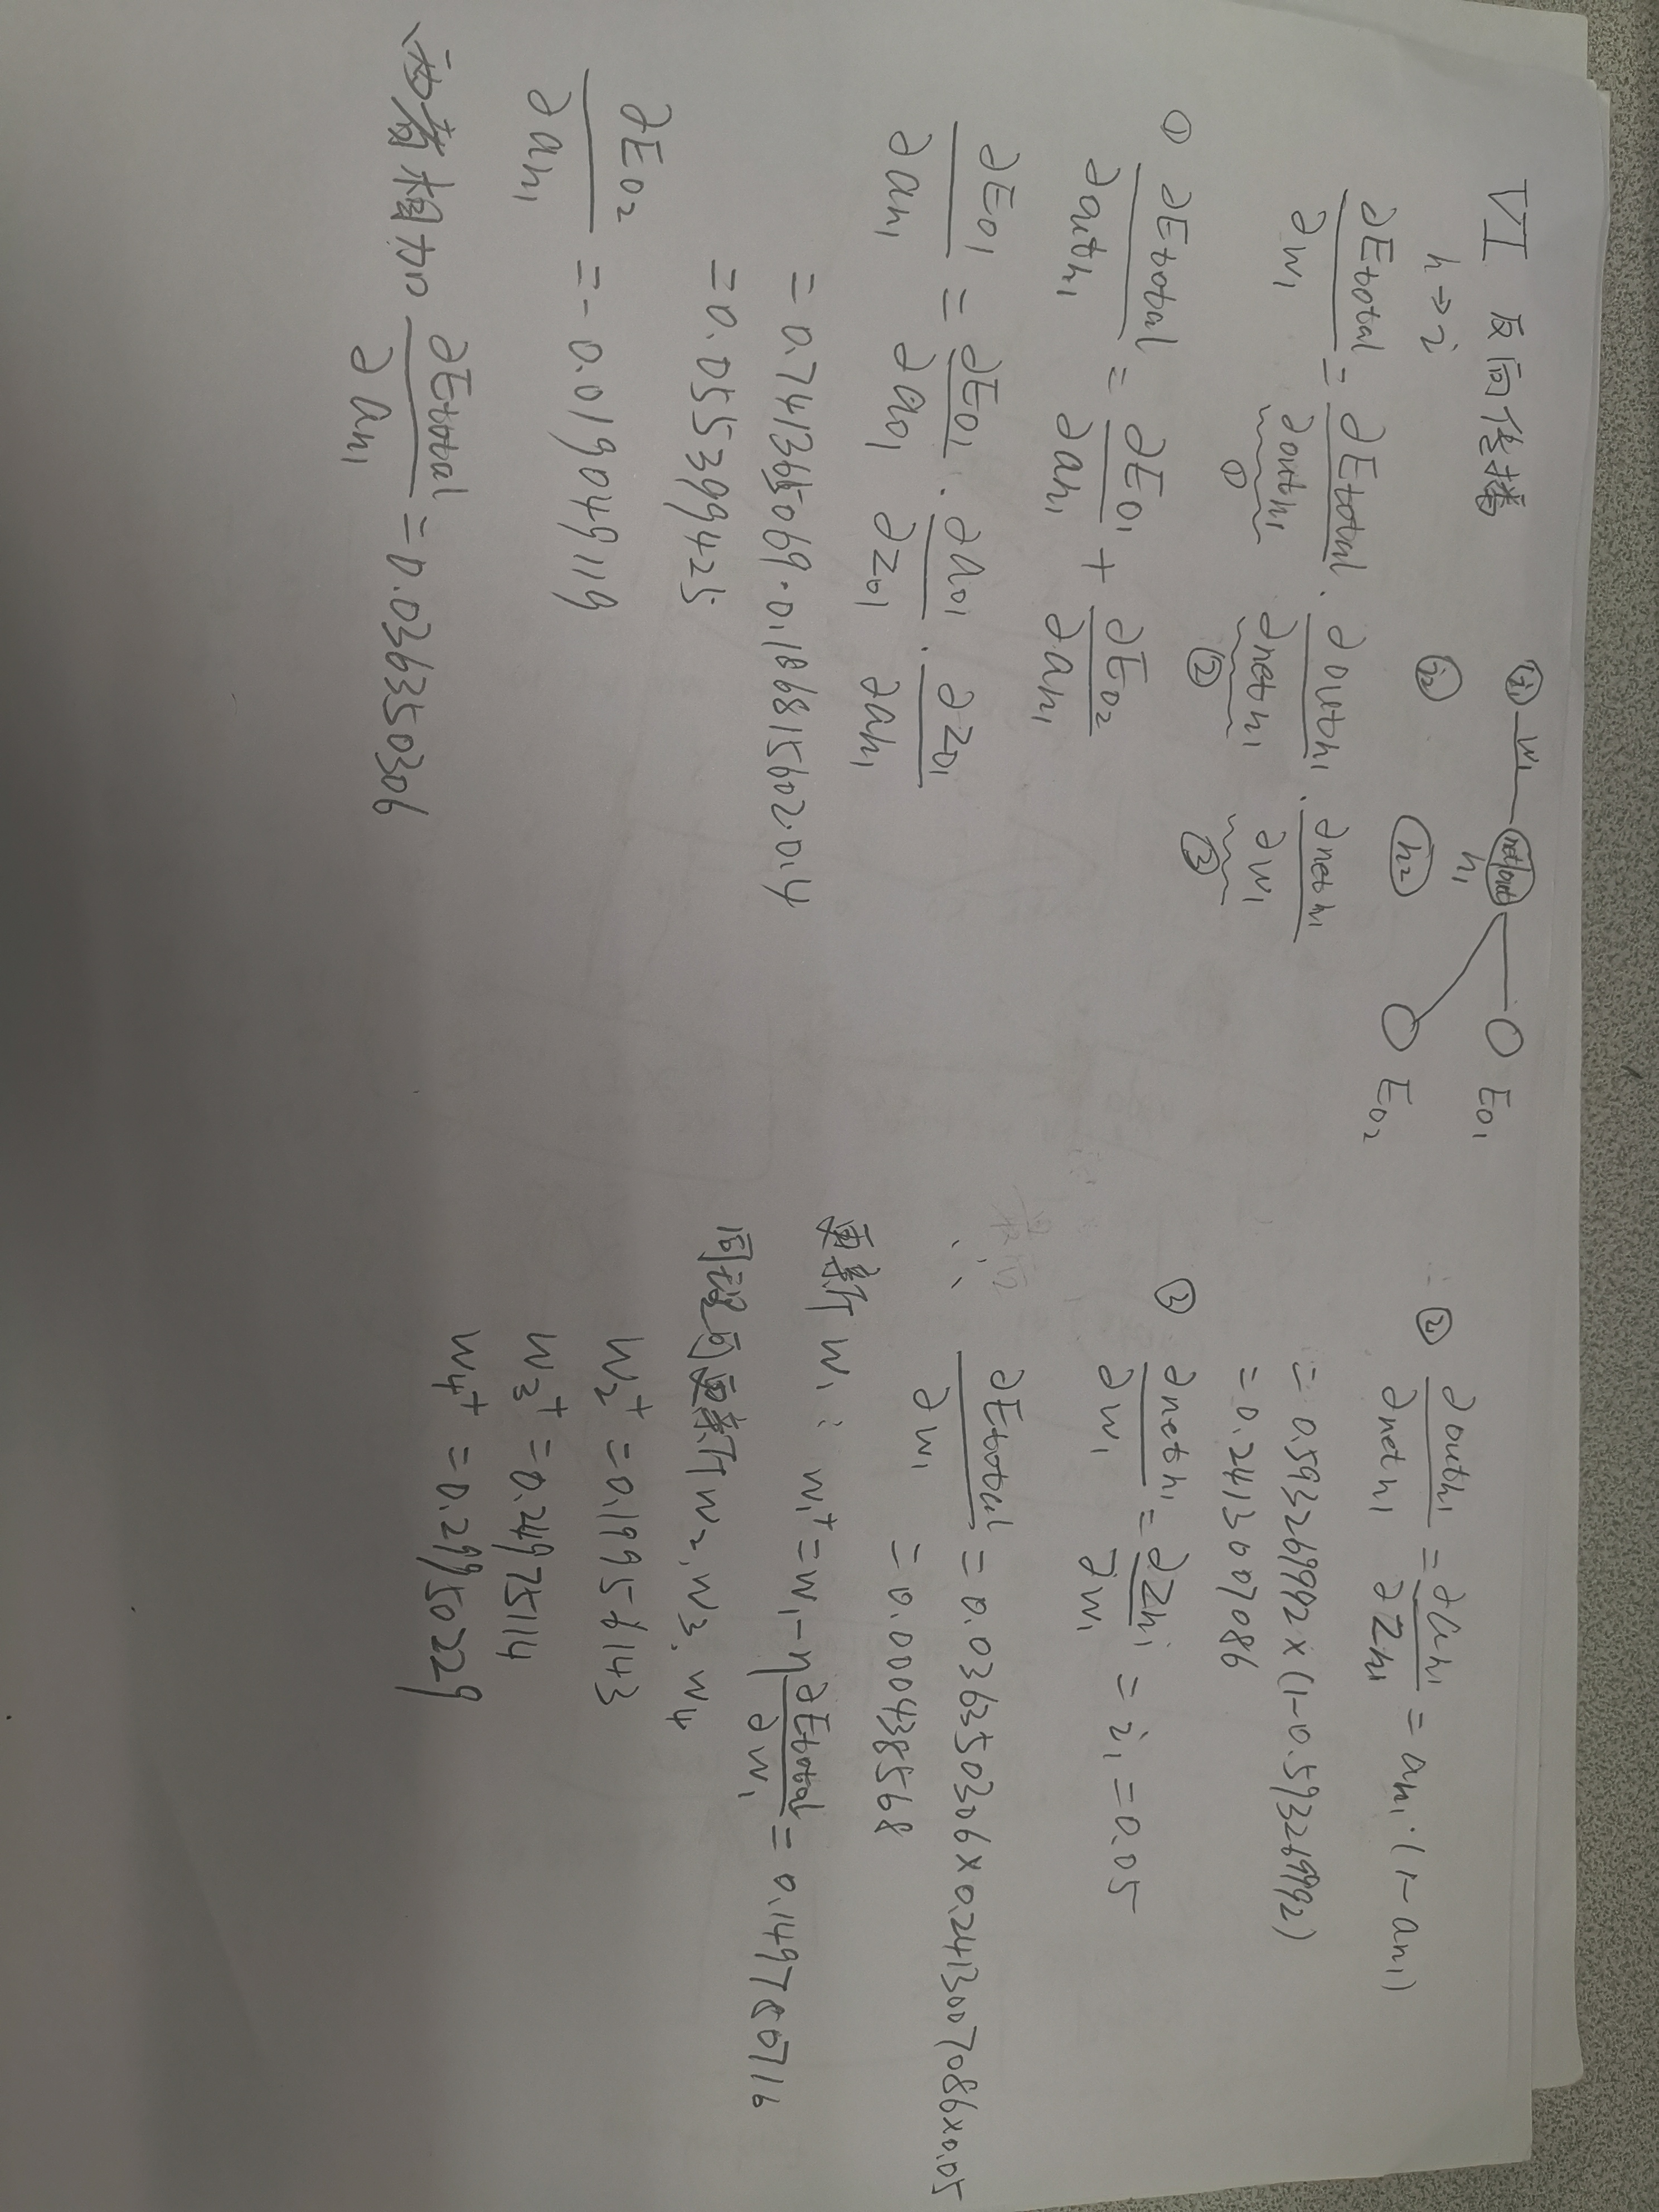 VI 反向传播
h→i
i₁ w₁ net/out h₁ E₀₁
i₂ h₂ E₀₂
∂Etotal/∂w₁ = ∂Etotal/∂outh₁ · ∂outh₁/∂neth₁ · ∂neth₁/∂w₁
① ② ③
① ∂Etotal/∂outh₁ = ∂E₀₁/∂ah₁ + ∂E₀₂/∂ah₁
∂E₀₁/∂ah₁ = ∂E₀₁/∂a₀₁ · ∂a₀₁/∂z₀₁ · ∂z₀₁/∂ah₁
= 0.741365069·0.186815602·0.4
= 0.055399425
∂E₀₂/∂ah₁ = -0.019049119
两者相加 ∂Etotal/∂ah₁ = 0.036350306
② ∂outh₁/∂neth₁ = ∂ah₁/∂zh₁ = ah₁·(1-ah₁)
= 0.593269992×(1-0.593269992)
= 0.241300709086
③ ∂neth₁/∂w₁ = ∂zh₁/∂w₁ = i₁ = 0.05
∴ ∂Etotal/∂w₁ = 0.036350306×0.2413007086×0.05
= 0.000438568
更新w₁: w₁⁺ = w₁-η ∂Etotal/∂w₁ = 0.149780716
同理可更新w₂,w₃,w₄
w₂⁺ = 0.19956143
w₃⁺ = 0.24975114
w₄⁺ = 0.29950229